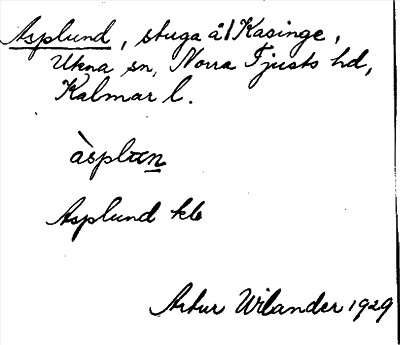 Asplund, stuga å/ Kasinge,
Ukna sn, Norra Tjusts hd,
Kalmar l.
àsplɯn
Asplund kb
Artur Wilander 1929